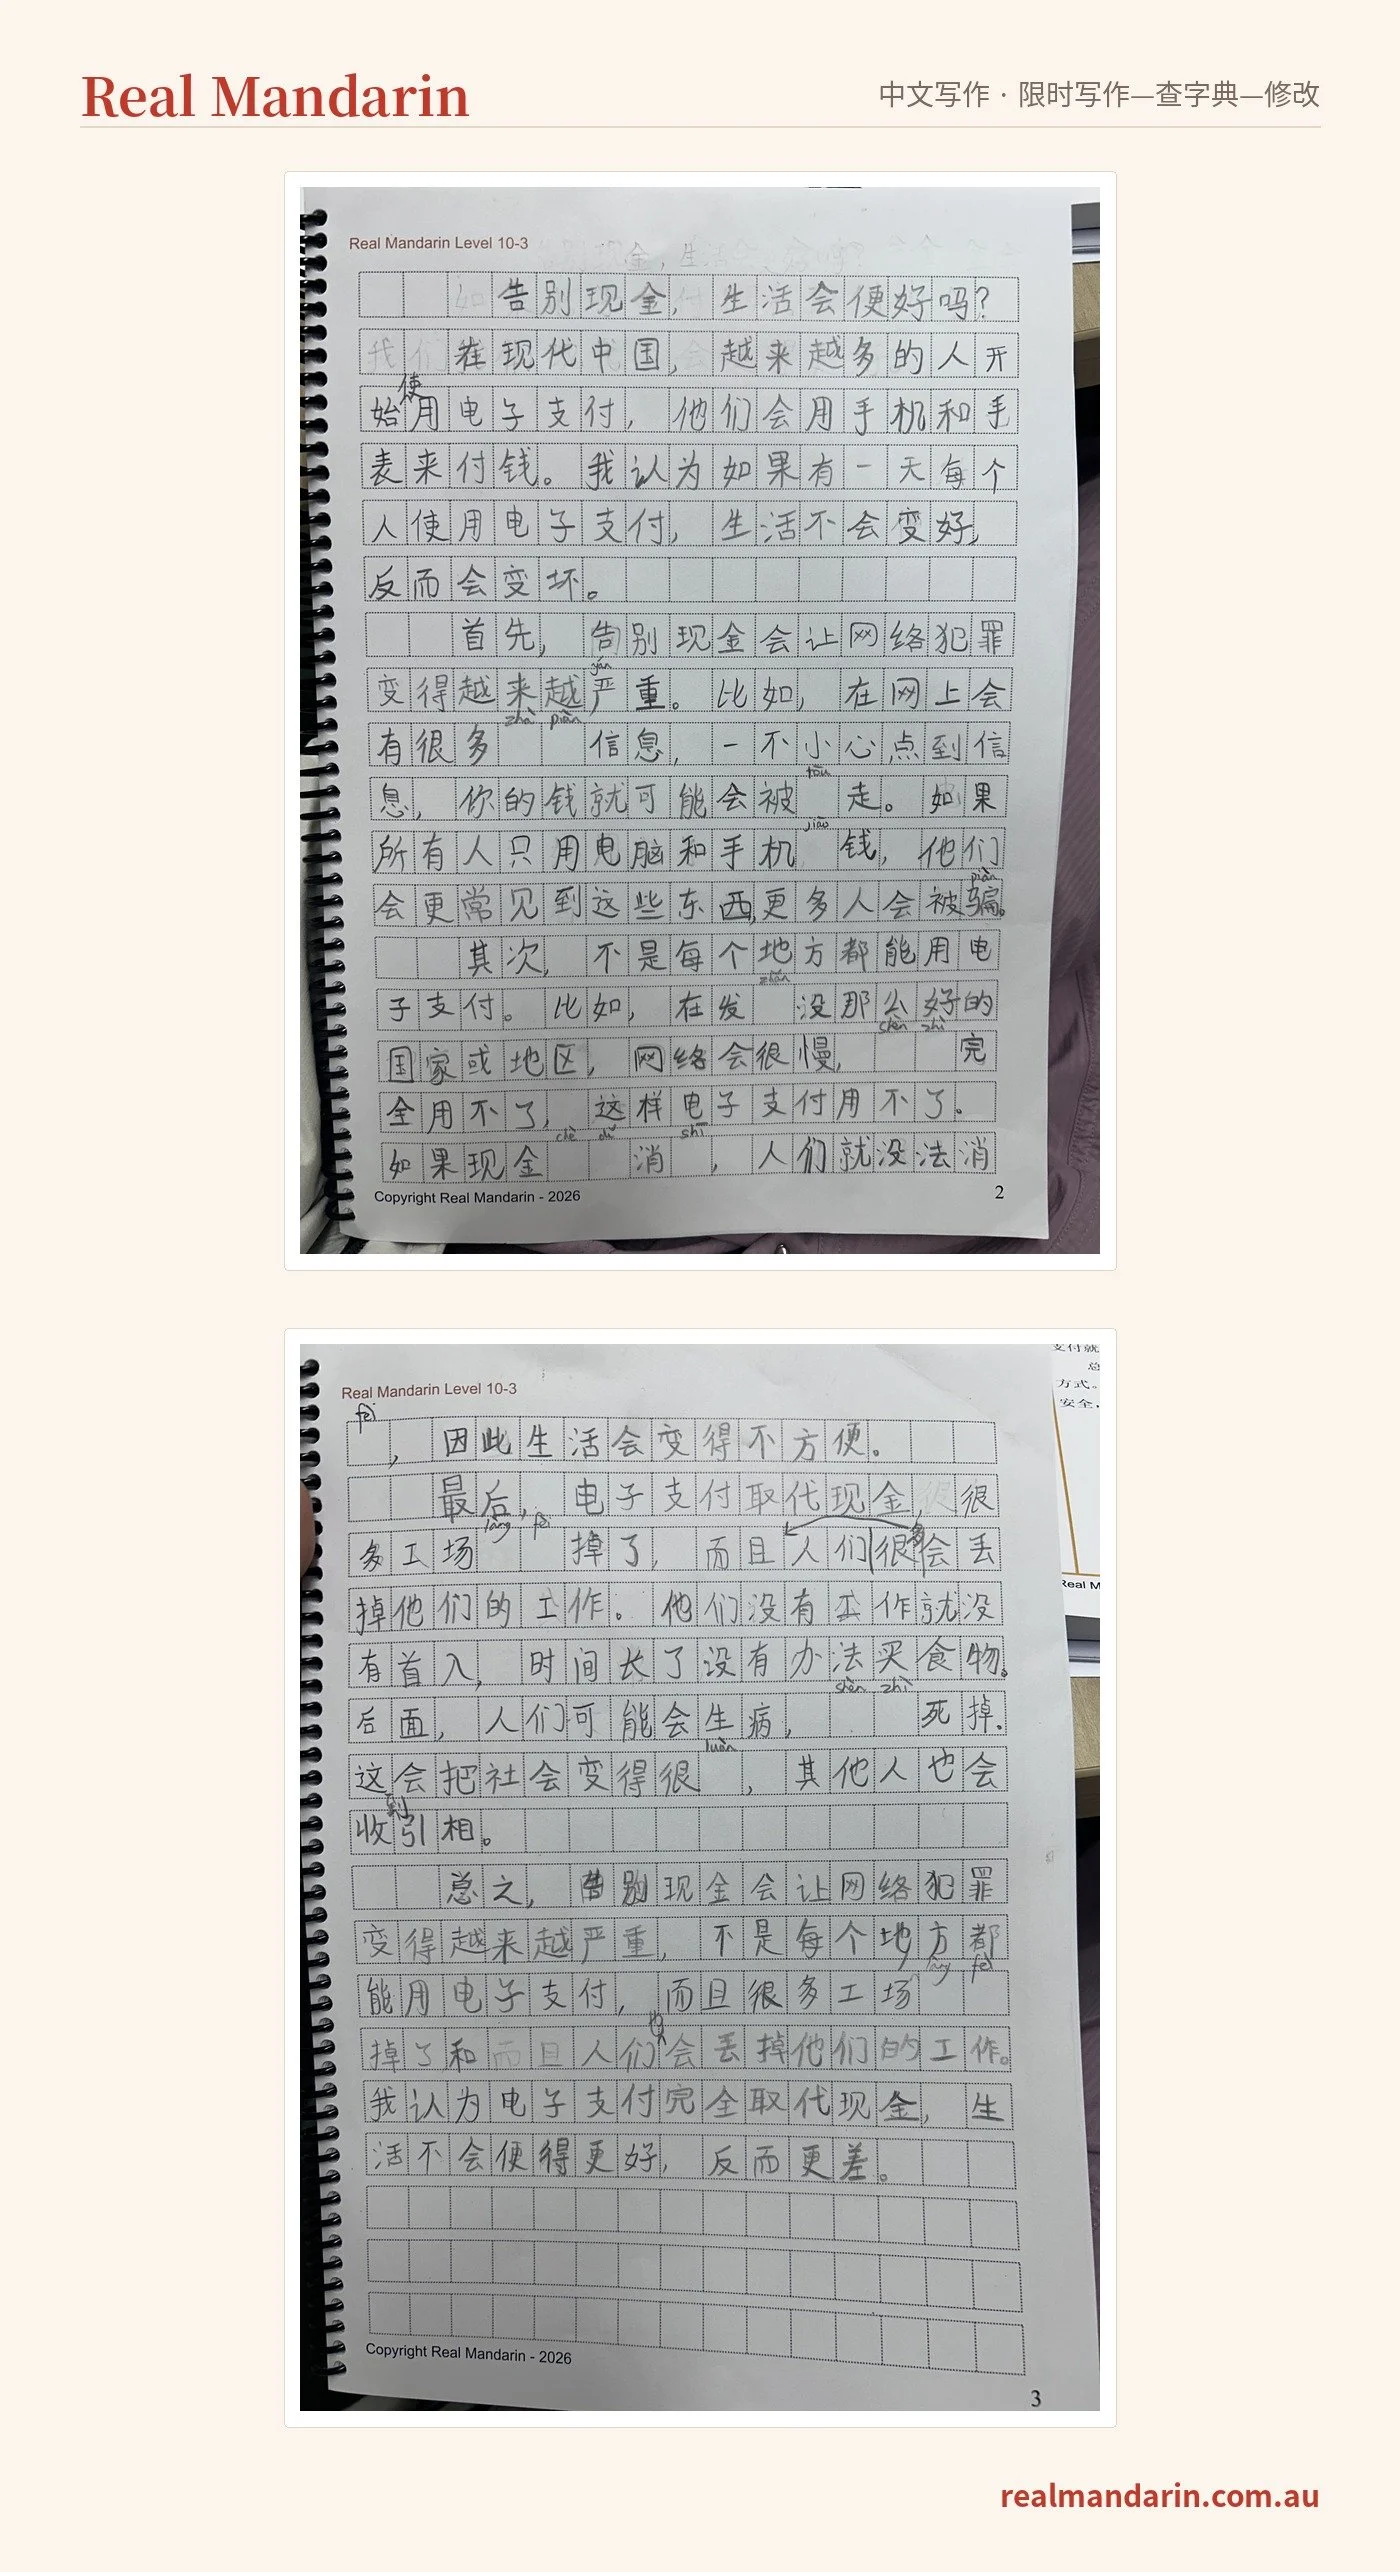 Real Mandarin
中文写作 · 限时写作—查字典—修改
Real Mandarin Level 10-3
告别现金，生活会便好吗？
在现代中国，越来越多的人开
使
始用电子支付，他们会用手机和手
表来付钱。我认为如果有一天每个
人使用电子支付，生活不会变好，
反而会变坏。
首先，告别现金会让网络犯罪
yán
变得越来越严重。比如，在网上会
zhà piàn
有很多 信息，一不小心点到信
tōu
息，你的钱就可能会被 走。如果
jiāo
所有人只用电脑和手机 钱，他们
piàn
会更常见到这些东西，更多人会被骗。
其次，不是每个地方都能用电
zhǎn
子支付。比如，在发 没那么好的
shèn zhì
国家或地区，网络会很慢， 完
全用不了，这样电子支付用不了。
chè dǐ shī
如果现金 消 ，人们就没法消
Copyright Real Mandarin - 2026
2
支付就
总
方式。
安全，
Real M
Real Mandarin Level 10-3
fèi
，因此生活会变得不方便。
最后，电子支付取代现金，很
làng fèi
多工场 掉了，而且人们很多会丢
掉他们的工作。他们没有工作就没
有首入，时间长了没有办法买食物。
shèn zhì
后面，人们可能会生病， 死掉。
luàn
这会把社会变得很 ，其他人也会
到
收引相。
总之，告别现金会让网络犯罪
变得越来越严重，不是每个地方都
làng fèi
能用电子支付，而且很多工场
掉了和而且人们会丢掉他们的工作。
我认为电子支付完全取代现金，生
活不会便得更好，反而更差。
Copyright Real Mandarin - 2026
3
realmandarin.com.au